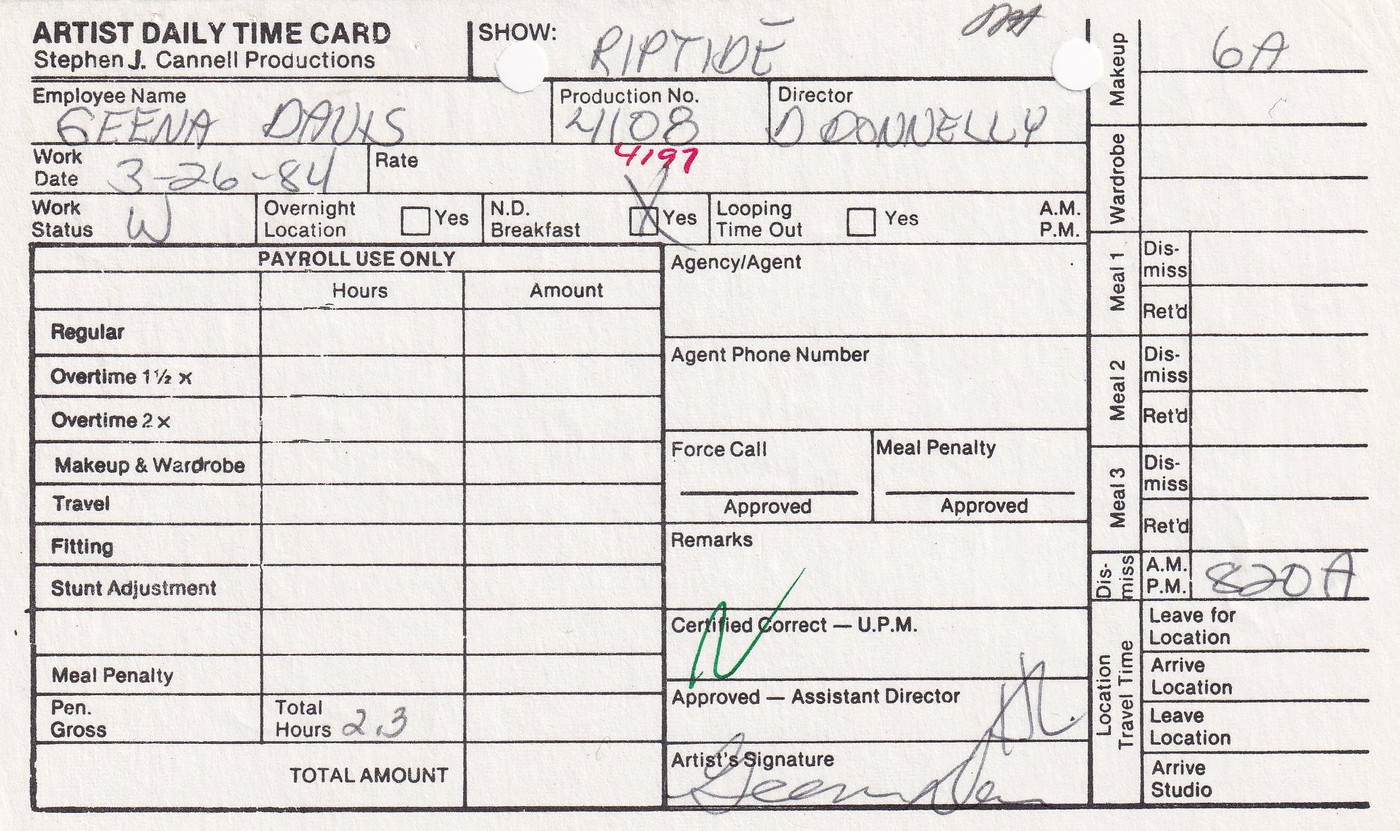 ARTIST DAILY TIME CARD
Stephen J. Cannell Productions
SHOW: RIPTIDE
Employee Name
GEENA DAVIS
Production No.
4108
4197
Director
D DONNELLY
Work Date 3-26-84
Rate
Work Status W
Overnight Location Yes
N.D. Breakfast X Yes
Looping Time Out Yes A.M. P.M.
PAYROLL USE ONLY
Hours Amount
Regular
Overtime 1½ x
Overtime 2 x
Makeup & Wardrobe
Travel
Fitting
Stunt Adjustment
Meal Penalty
Pen. Gross
Total Hours 2.3
TOTAL AMOUNT
Agency/Agent
Agent Phone Number
Force Call
Approved
Meal Penalty
Approved
Remarks
Certified Correct — U.P.M.
Approved — Assistant Director
Artist's Signature
Geena Davis
Makeup 6A
Wardrobe
Meal 1
Dis-
miss
Ret'd
Meal 2
Dis-
miss
Ret'd
Meal 3
Dis-
miss
Ret'd
Dis-
miss
A.M.
P.M.
820A
Location Travel Time
Leave for Location
Arrive Location
Leave Location
Arrive Studio